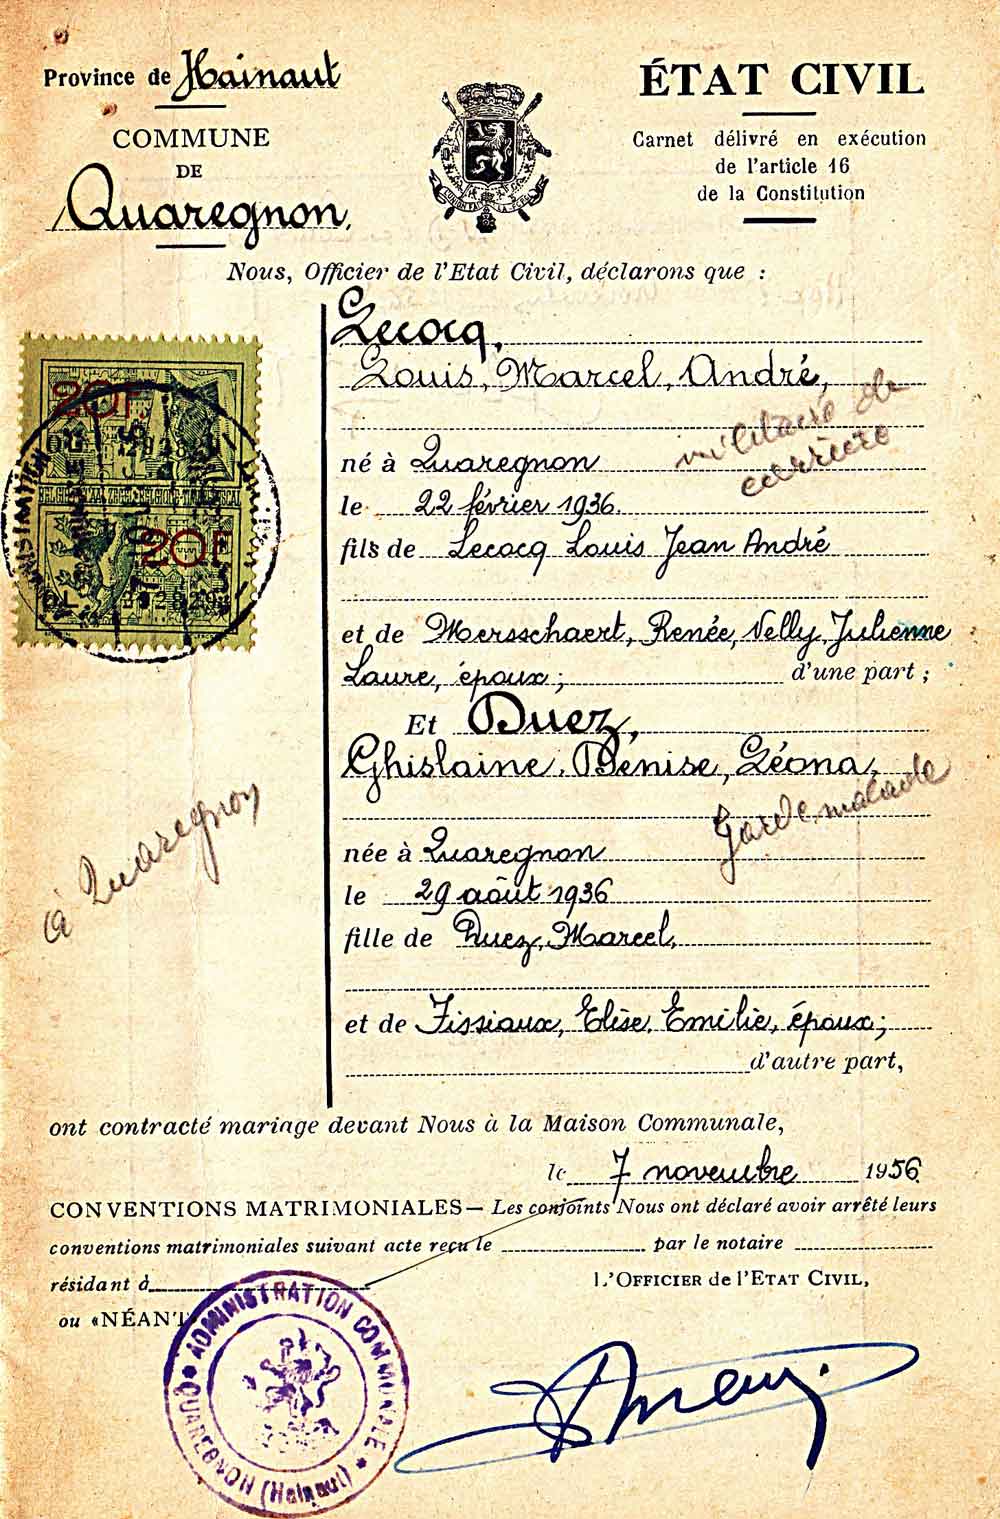 Province de Hainaut
COMMUNE
DE
Quaregnon,
ÉTAT CIVIL
Carnet délivré en exécution
de l'article 16
de la Constitution
Nous, Officier de l'Etat Civil, déclarons que :
Lecocq,
Louis, Marcel, André,
militaire de
carrière
né à Quaregnon
le 22 février 1936.
fils de Lecocq Louis Jean André
et de Mersschaert, Renée, Nelly, Julienne
Laure, époux; d'une part ;
Et Duez,
Ghislaine, Dénise, Léona,
Garde malade
née à Quaregnon
le 29 août 1936
fille de Duez, Marcel,
et de Fissiaux, Elise, Emilie, époux;
d'autre part,
20F.
20F
à Quaregnon
ont contracté mariage devant Nous à la Maison Communale,
le 7 novembre 1956.
CONVENTIONS MATRIMONIALES — Les conjoints Nous ont déclaré avoir arrêté leurs
conventions matrimoniales suivant acte reçu le par le notaire
résidant à
ou «NÉANT
L'OFFICIER de l'ETAT CIVIL,
ADMINISTRATION COMMUNALE
QUAREGNON (Hainaut)